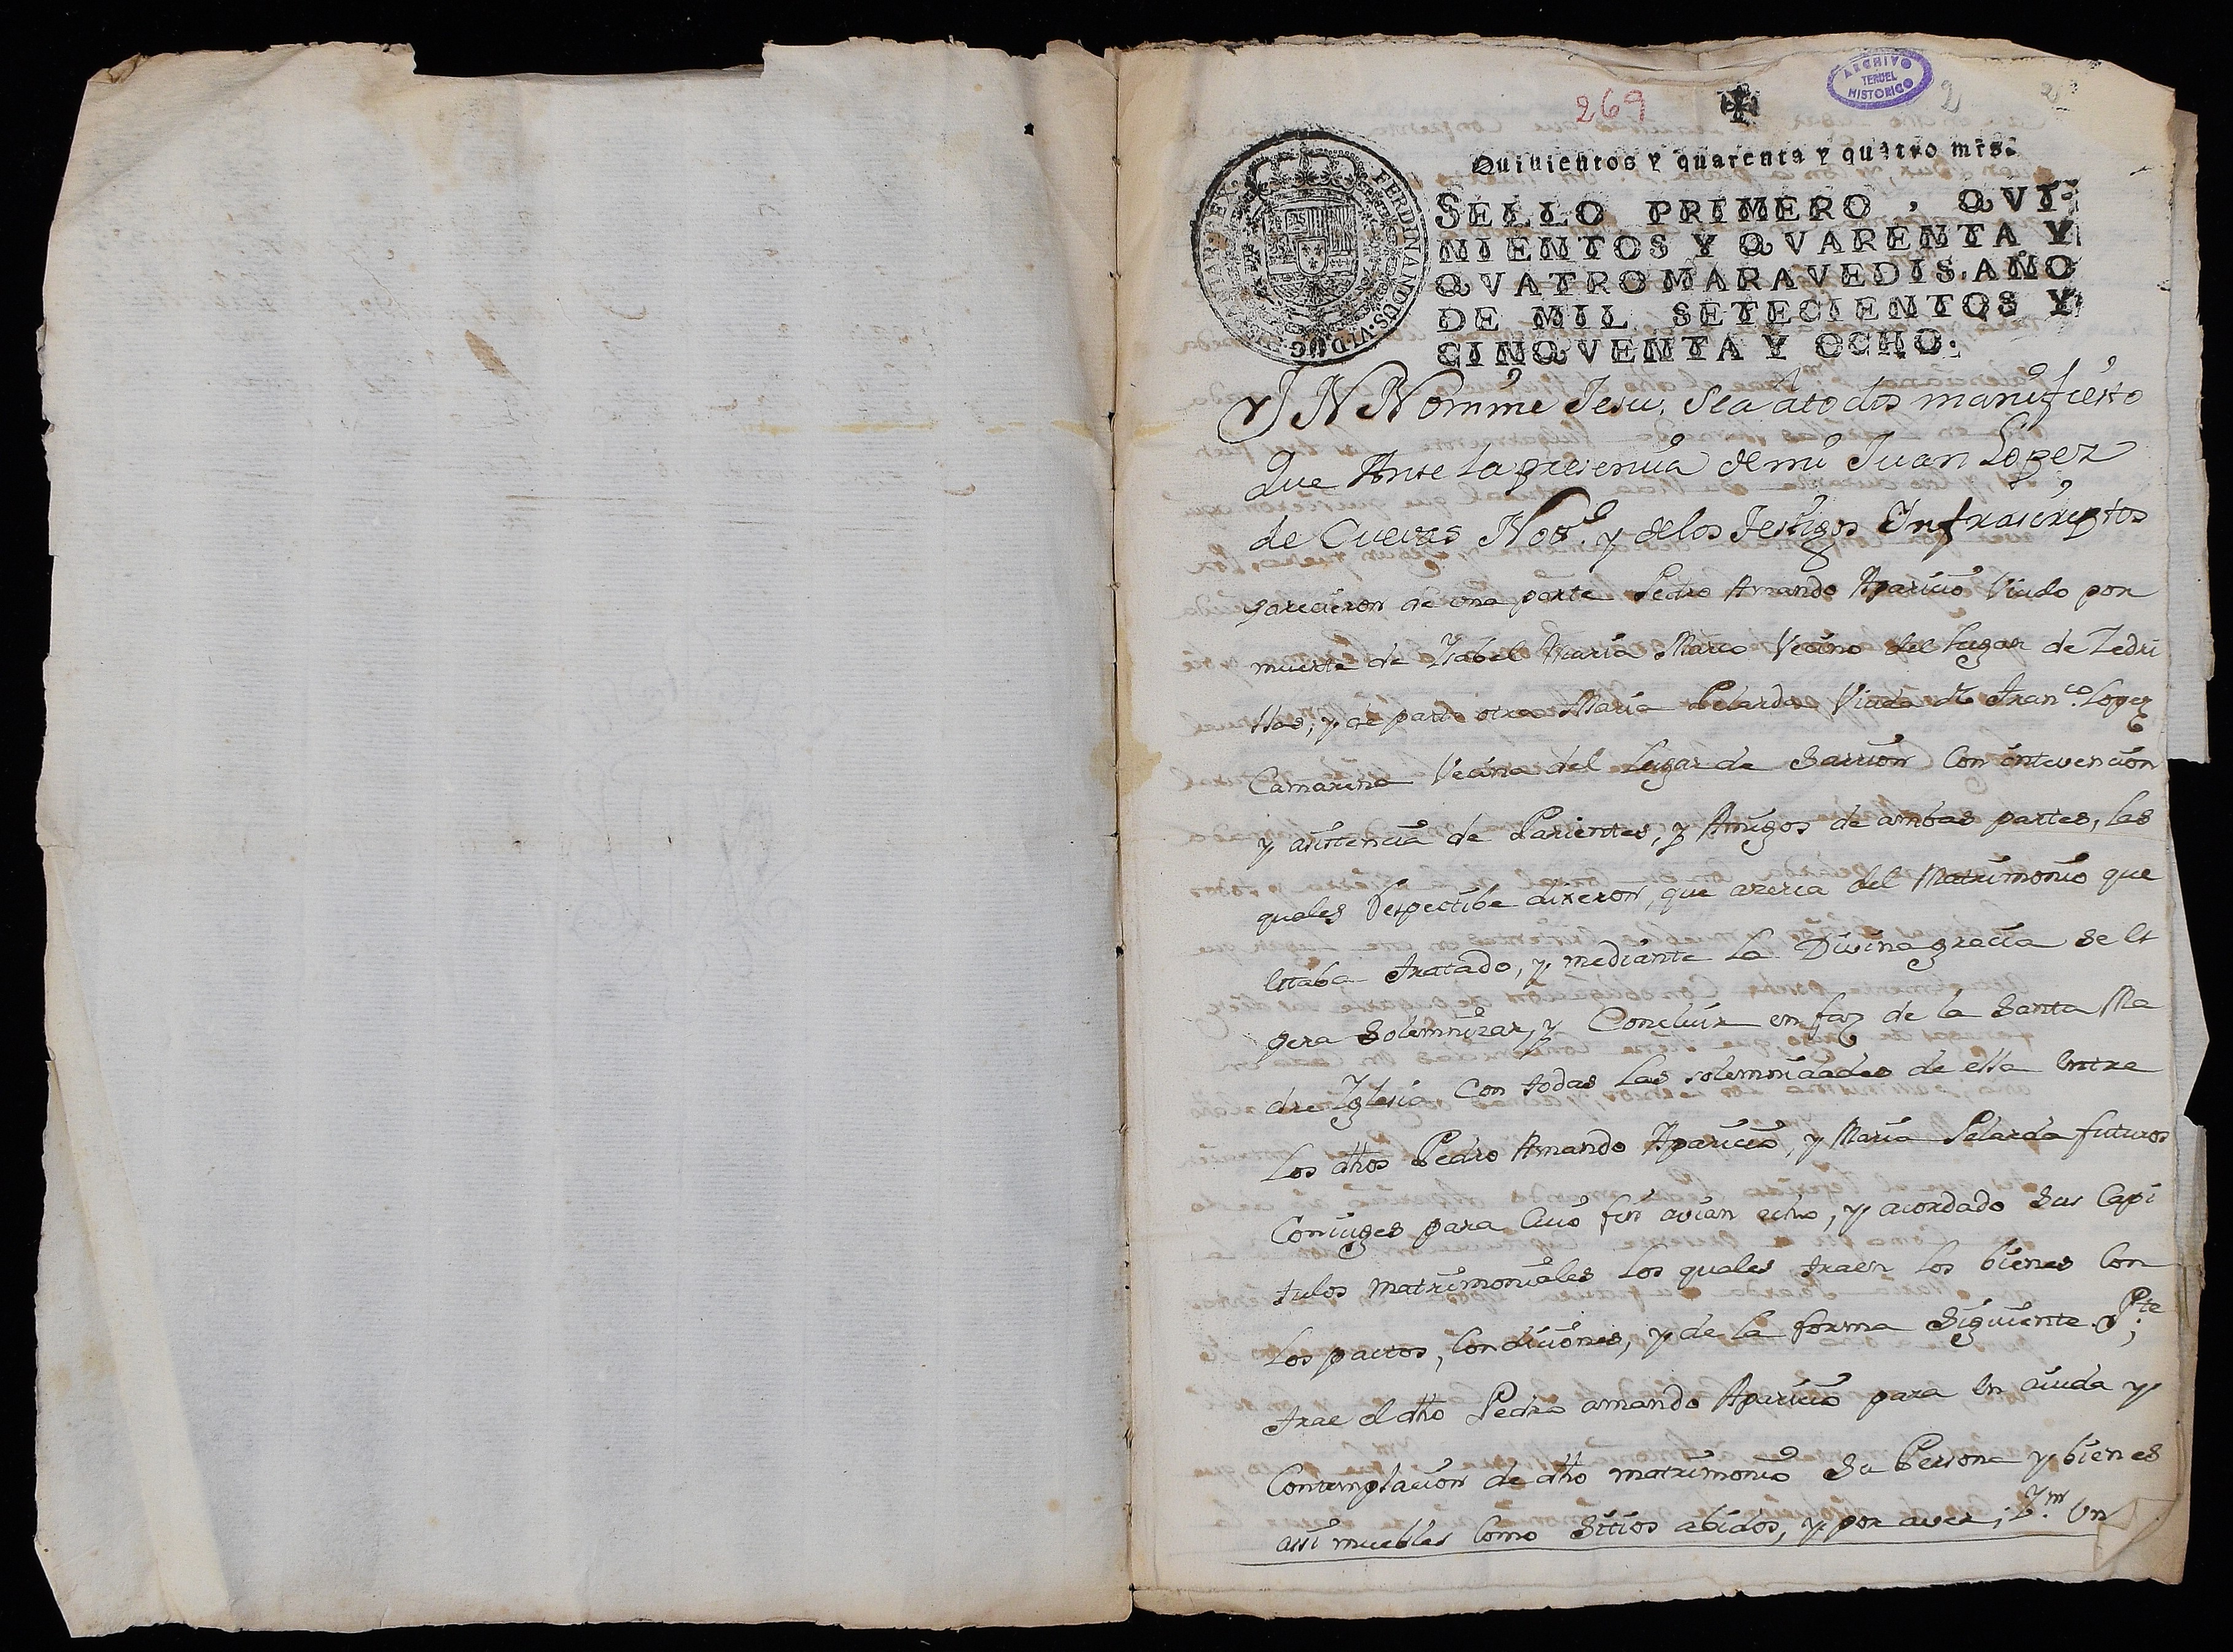 ARCHIVO
TERUEL
HISTORICO
269
2
Quinientos y quarenta y quatro mrs.
FERDINANDUS·VI·D·G·HISPANIAR·REX·
SELLO PRIMERO, QVI-
NIENTOS Y QVARENTA Y
QVATRO MARAVEDIS, AÑO
DE MIL SETECIENTOS Y
CINQVENTA Y OCHO.
IN Nomine Jesu, Sea atodos manifiesto
Que Ante la presencia de mi Juan Lopez
de Cuevas Nott.º y de los Testigos Infrascriptos
parecieron de una parte Pedro Amando Aparicio Viudo por
muerte de Ysabel Maria Marco Vecino del Lugar de Zedri
llas; y de parte otra Maria Pelarda Viuda de Fran.co Lopez
Camarena Vecina del Lugar de Sarrion Con intevencion
y asistencia de Parientes, y Amigos de ambas partes, las
quales Respectibe dixeron, que azerca del Matrimonio que
estaba tratado, y mediante la Divina gracia se es
pera Solemnizar, y Concluir en faz de la Santa Ma
dre Yglesia Con todas las solemnidades de ella entre
Los dhos Pedro Amando Aparicio, y Maria Pelarda futuros
Coniuges para Cuio fin avian echo, y acordado Sus Capi
tulos matrimoniales los quales traen los bienes Con
Los pactos, Condiciones, y de la forma Siguiente. P.te
trae el dho Pedro amando Aparicio para en aiuda y
Contemplacion de dho matrimonio Su Persona y bienes
assi muebles Como Sitios abidos, y por aver; Y.m Vn